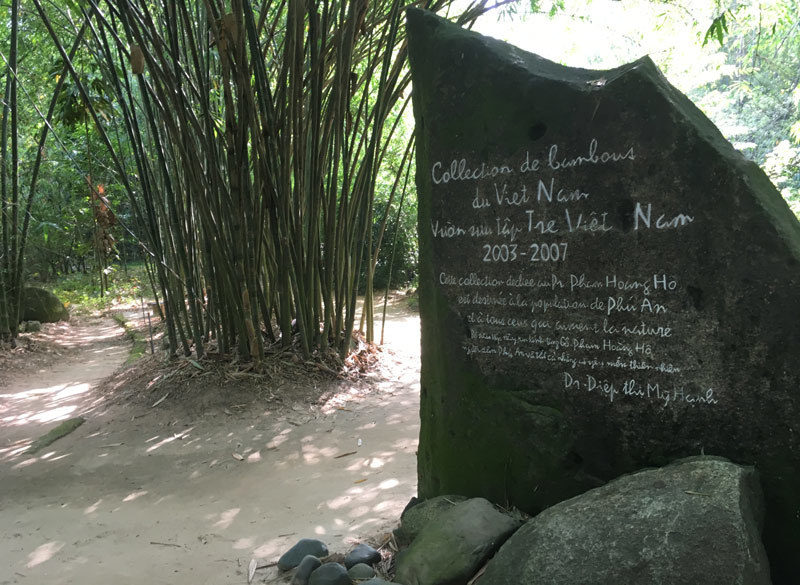 Collection de bambous
du Việt Nam
Vườn sưu tập Tre Việt Nam
2003-2007
Cette collection dédiée au Pr. Pham Hoang Hô
est destinée à la population de Phú An
et à tous ceux qui aiment la nature
Phạm Hoàng Hộ
Phú An và tất cả những người mến thiên nhiên
Dr. Diệp thị Mỹ Hạnh